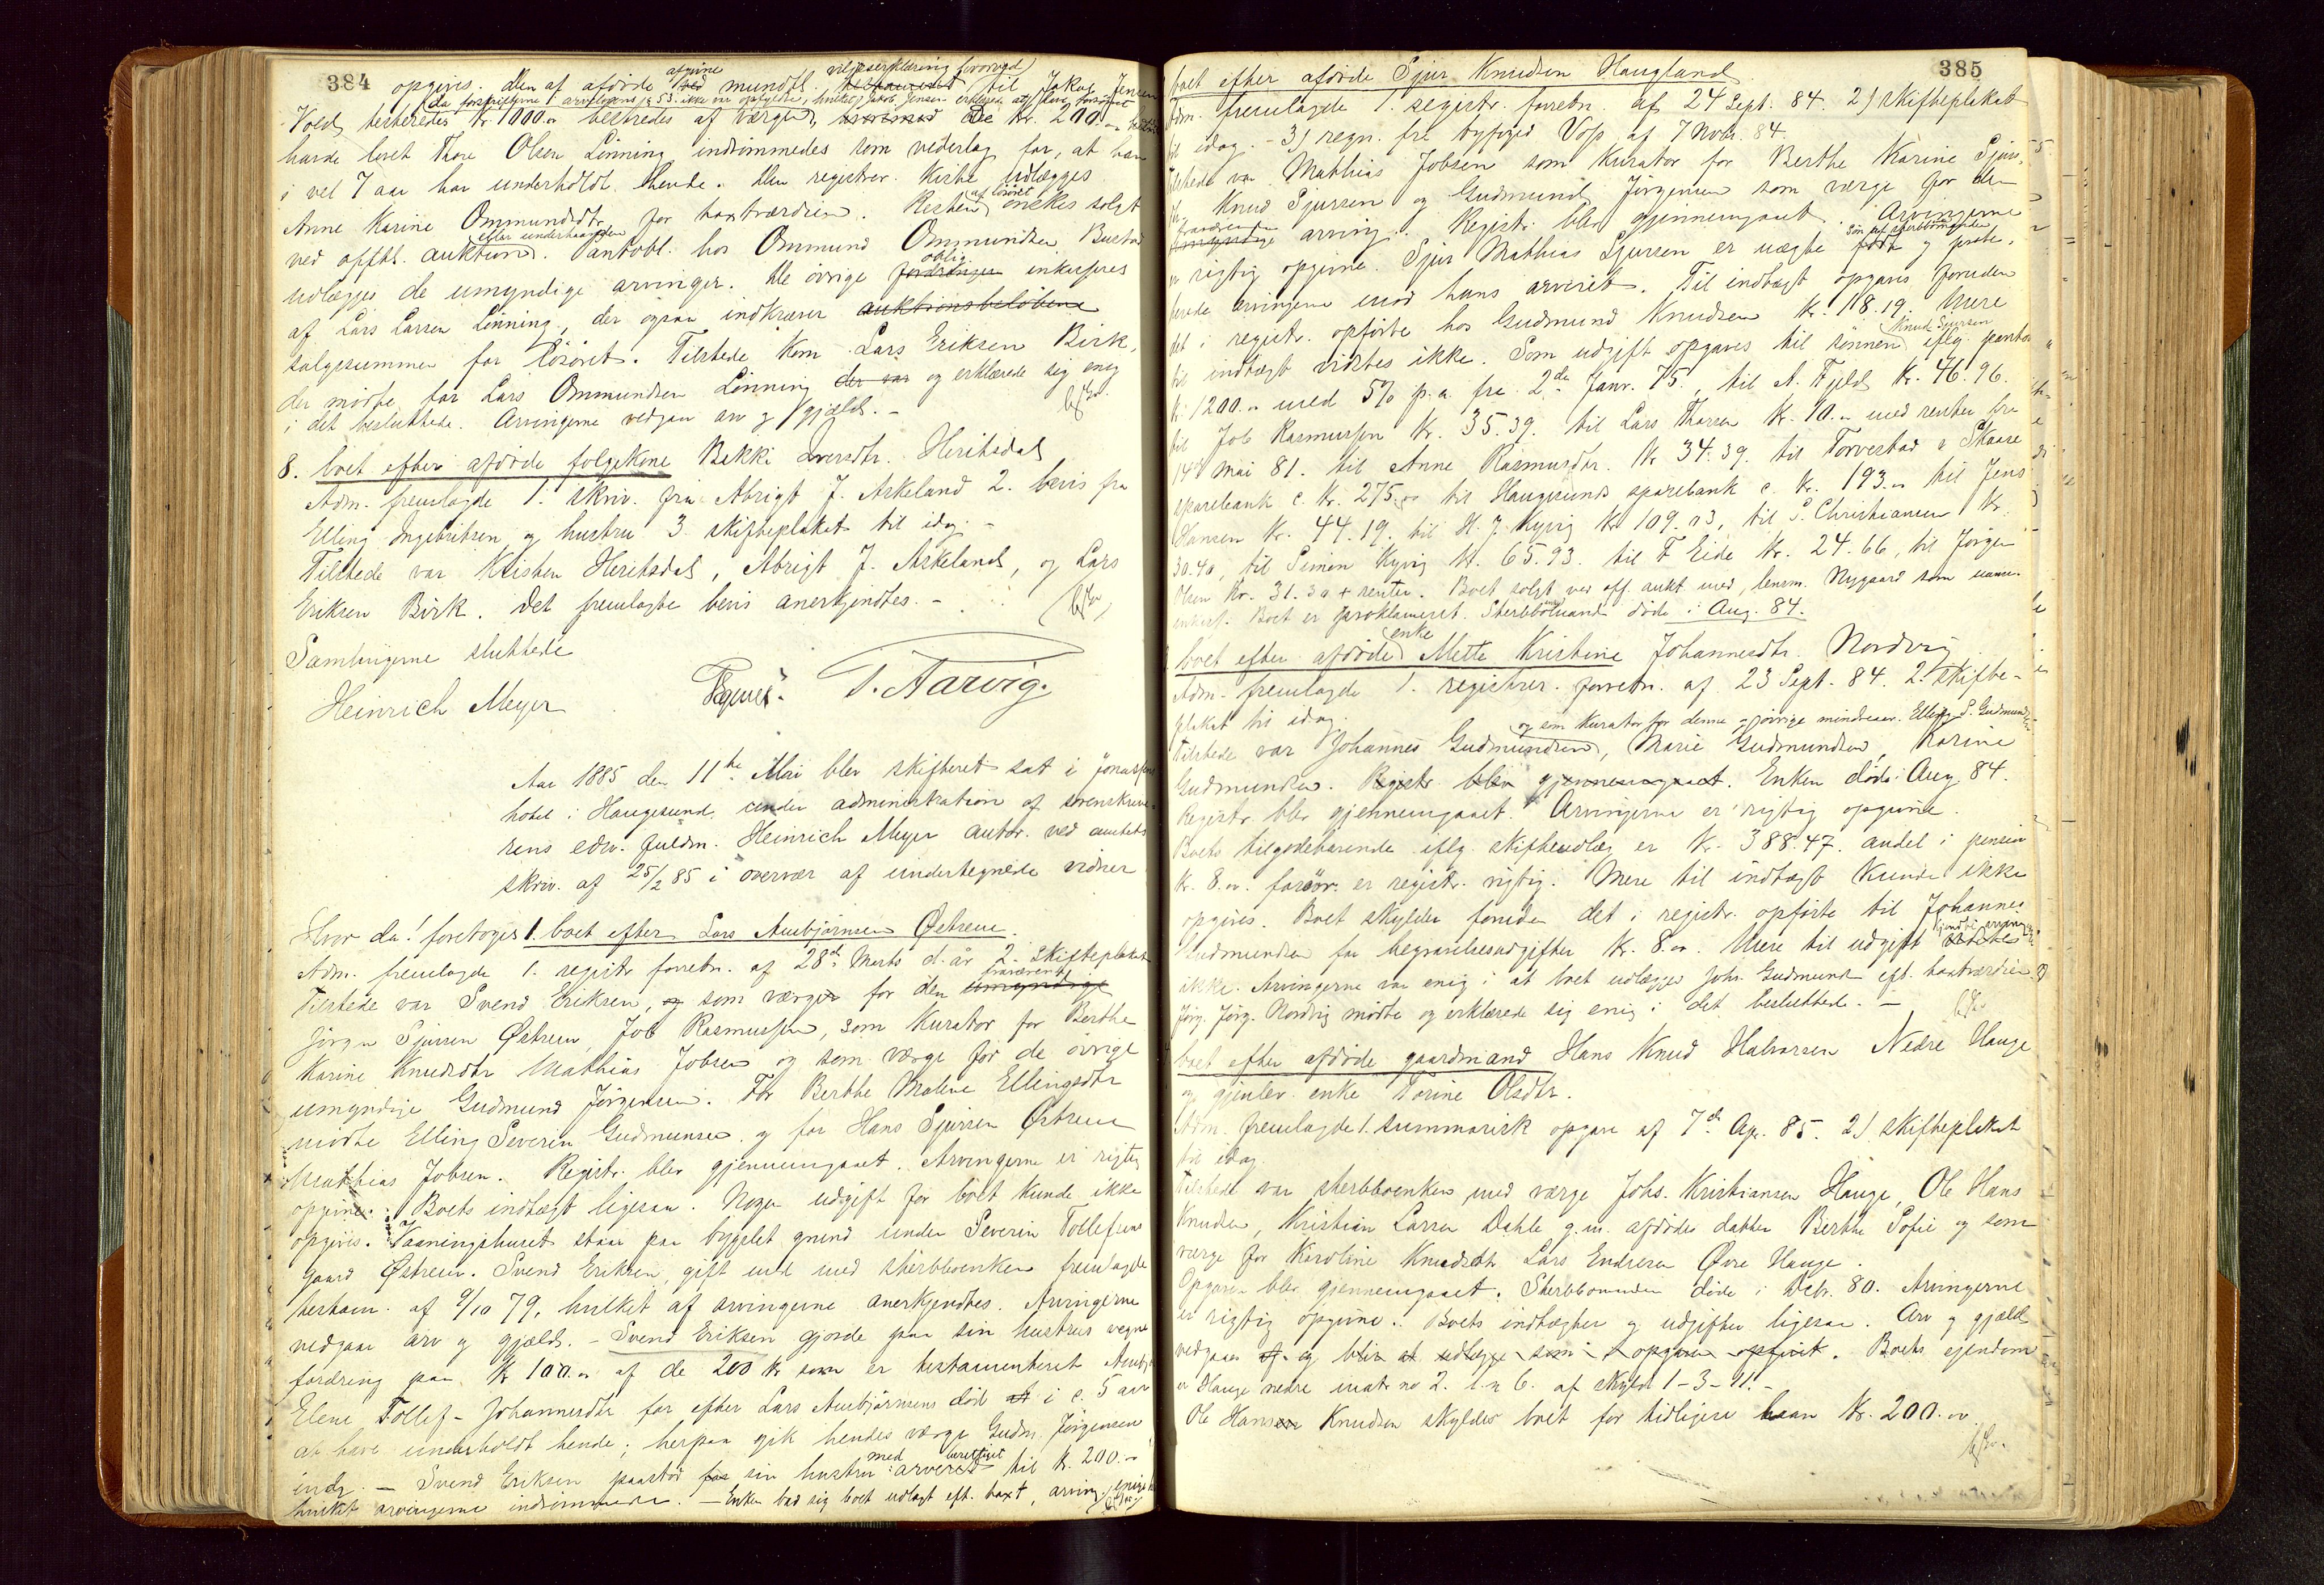 384
opgives. Den af afdøde afgivne mundtl. viljeserklæring til Jakob Jensen
(da forskrifterne i arvelovens § 53 ikke er opfyldte, hvilket Jakob Jensen erklærer
Vold, testeredes Kr. 1000.00 bestredes af værgen. De Kr. 200.00
havde lovet Thore Olsen Lønning indrømmedes som vederlag for, at han
i vel 7 aar har underholdt hende. Den registrer. Kiste udlægges
Anne Karine Ommundsdtr. for taxtværdien. Resten af løsøret ønskes solgt
ved offtl. auktion eller underhaanden. Pantobl. hos Ommund Ommundsen Bustad
udlægges de umyndige arvinger. De øvrige oblig. inkasseres
af Lars Larsen Lønning, der ogsaa indkræver auktionsbeløbene
salgssummen for løsøret. Tilstede kom Lars Eriksen Birk,
der mødte for Lars Ommundsen Lønning der var og erklærede sig enig
i det besluttede. Arvingerne vedgaa arv og gjæld. -
8. boet efter afdøde folgekone Bekki Iversdtr. Heritsdal
Adm. fremlagde 1. skriv. fra Abrigt J. Askeland 2. bevis fra
Elling Ingebritsen og hustru 3. skifteplakat til idag. -
Tilstede var Kristen Heritsdal, Abrigt J. Askeland, og Lars
Eriksen Birk. Det fremlagte bevis anerkjendtes. -
Samlingerne sluttede
Heinrich Meyer T. Aarvig.
Aar 1885 den 11te Mai blev skifteret sat i Jonassens
hotel i Haugesund, under administration af sorenskrive-
rens edsv. fuldm. Heinrich Meyer autor. ved amtets
skriv. af 25/2 85 i overvær af undertegnede vidner
Hvor da! foretoges 1. boet efter Lars Ambjørnsen Østrem.
Adm. fremlagde 1. registr forretn. af 28de Marts d. år 2. Skifteplakat
Tilstede var Svend Eriksen, og som værger for den fraværende umyndige
Jørgen Sjursen Østrem, Job Rasmussen, som Kurator for Berthe
Karine Knudsdtr Mathias Jobsen og som værge for de øvrige
umyndige Gudmund Jørgensen. For Berthe Malene Ellingsdtr
mødte Elling Severin Gudmunsen og for Hans Sjursen Østrem
Mathias Jobsen. Registr. blev gjennemgaaet. Arvingerne er rigtig
opgivne. Boets indtægt ligesaa. Nogen udgift for boet kunde ikke
opgives. Vaaningshuset staar paa bygslet grund under Severin Tollefsens
gaard Østrem. Svend Eriksen, gift med sterbboenken fremlagde
testam. af 9/10 79, hvilket af arvingerne anerkjendtes. Arvingerne
vedgaar arv og gjæld. - Svend Eriksen gjorde paa sin hustrus vegne
fordring paa Kr 100.00 af de 200 kr som er testamenteret
Elene Tollef-Johannesdtr for efter Lars Ambjørnsens død at i c. 5 aar
at have underholdt hende; herpaa gik hendes værge Gudm. Jørgensen
ind. - Svend Eriksen paastod for sin hustru med arveret berettiget til kr. 200.-
hvilket arvingerne indrømmede. - Enken bad sig boet udlagt eft. taxt, arving. enige
385
boet efter afdøde Sjur Knudsen Haugland
Adm. fremlagde 1. registr. forretn. af 24 Sept. 84. 2) skifteplakat
til idag. - 3) regn. fra byfoged Vosp af 7 Novbr. 84.
Tilstede var Mathias Jobsen som Kurator for Berthe Karine Sjurs-
Knud Sjursen og Gudmund Jørgensen som værge for den
fraværende umyndige arving. Registr. blev gjennemgaaet. Arvingerne
er rigtig opgivne. Sjur Mathias Sjursen er uægte født søn af sterbbomanden og prote-
sterede arvingerne mod hans arveret. Til indtægt opgaves foruden
det i registr. opførte hos Gudmund Knudsen Kr. 18.19. Mere
til indtægt vidstes ikke. Som udgift opgaves til sønnen Knud Sjursen iflg. pantob
Kr. 1200.00 med 5% p.a. fra 2de Janr. 75., til A. Fjeld Kr. 46.96.
til Job Rasmussen Kr. 35.39. til Lars Thorsen Kr. 10.00 med renter fra
14de Mai 81. til Anne Rasmusdtr. Kr 34.39. til Torvestad & Skaare
sparebank c. Kr. 275.00 til Haugesunds sparebank c. Kr. 193.00 til Jens
Hansen Kr. 44.19. til H. J. Kyvig Kr 109.03, til S. Christiansen Kr.
30.40, til Simon Kyvig Kr. 65.93. til F Eide Kr. 24.66, til Jørgen
Olsen Kr. 31.30 + renter. Boet solgt ved off. aukt med, lensm. Nygaard som
Boet er proklameret. Sterbbomanden døde i Aug. 84.
boet efter afdøde enke Mette Kristine Johannesdtr. Nordvig
Adm. fremlagde 1. registrer. forretn. af 23 Sept. 84. 2. skifte-
plakat til idag.
og som kurator for denne - øvrige mindreaar. Elling S. Gudmundsen
Tilstede var Johannes Gudmundsen, Marie Gudmundsen, Karine
Gudmundsen. Registr. blev gjennemgaaet. Enken døde i Aug 84.
Registr. blev gjennemgaaet. Arvingerne er rigtig opgivne.
Boets tilgodehavende iflg. skifteudlæg er Kr. 388.47. andel i pension
Kr. 8.00. forøvr. er registr. rigtig. Mere til indtægt kunde ikke
opgives. Boet skylder foruden det i registr. opførte til Johannes
Gudmundsen for begravelsesudgifter Kr. 8.00. Mere til udgift
ikke. Arvingerne var enig i at boet udlægges Johs. Gudmunds. eft. taxtværdien.
Jørg. Jørg. Nordvig mødte og erklærede sig enig i det besluttede. -
boet efter afdøde gaardmand Hans Knud Halvorsen Nedre Hauge
og gjenlev. enke Torine Olsdtr.
Adm. fremlagde 1. summarisk opgave af 7de Apr. 85. 2) skifteplakat
til idag.
Tilstede var sterbboenken med værge Johs. Kristiansen Hauge, Ole Hans
Knudsen, Kristian Larsen Dahle g.m. afdødes datter Berthe Sofie og som
værge for Karoline Knudsdtr Lars Endresen Øvre Hauge.
Opgaven blev gjennemgaaet. Sterbbomanden døde i Debr. 80. Arvingerne
er rigtig opgivne. Boets indtægter og udgifter ligesaa. Arv og gjæld
vedgaaes og blir at udlægge som i opgaven opført. Boets ejendom
er Hauge nedre matr no 2. l.n 6. af skyld 1-3-11. -
Ole Hansen Knudsen skylder boet for tidligere laan Kr. 200.00